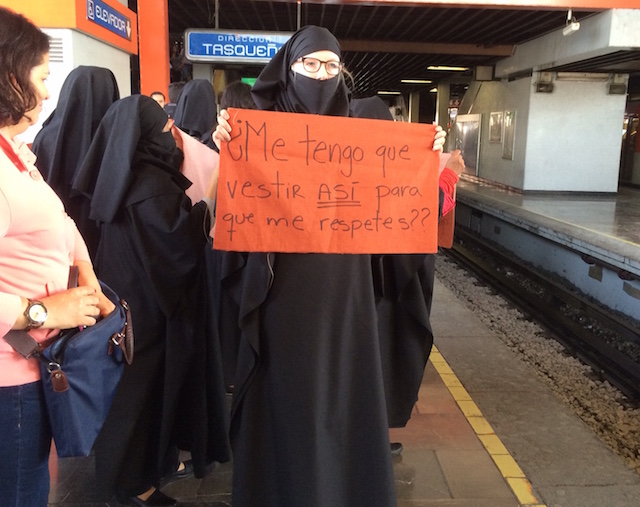 ELEVADOR
DIRECCION
TASQUEÑA
¿Me tengo que
vestir ASÍ para
que me respetes??